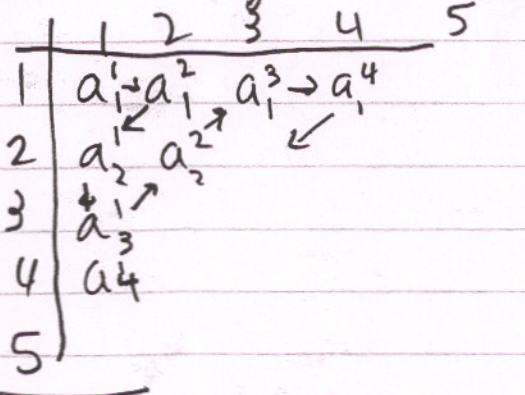 1 2 3 4 5
1 a₁¹ → a₁² a₁³ → a₁⁴
2 a₂¹ a₂²
3 a₃¹
4 a4
5